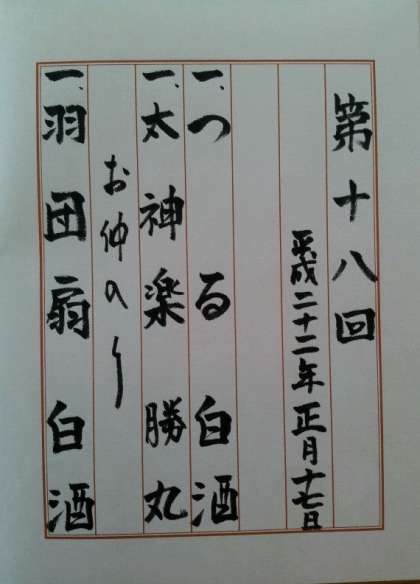 第十八回
平成二十二年 正月十七日
一、つる 白酒
一、太神楽 勝丸
お仲入り
一、羽団扇 白酒